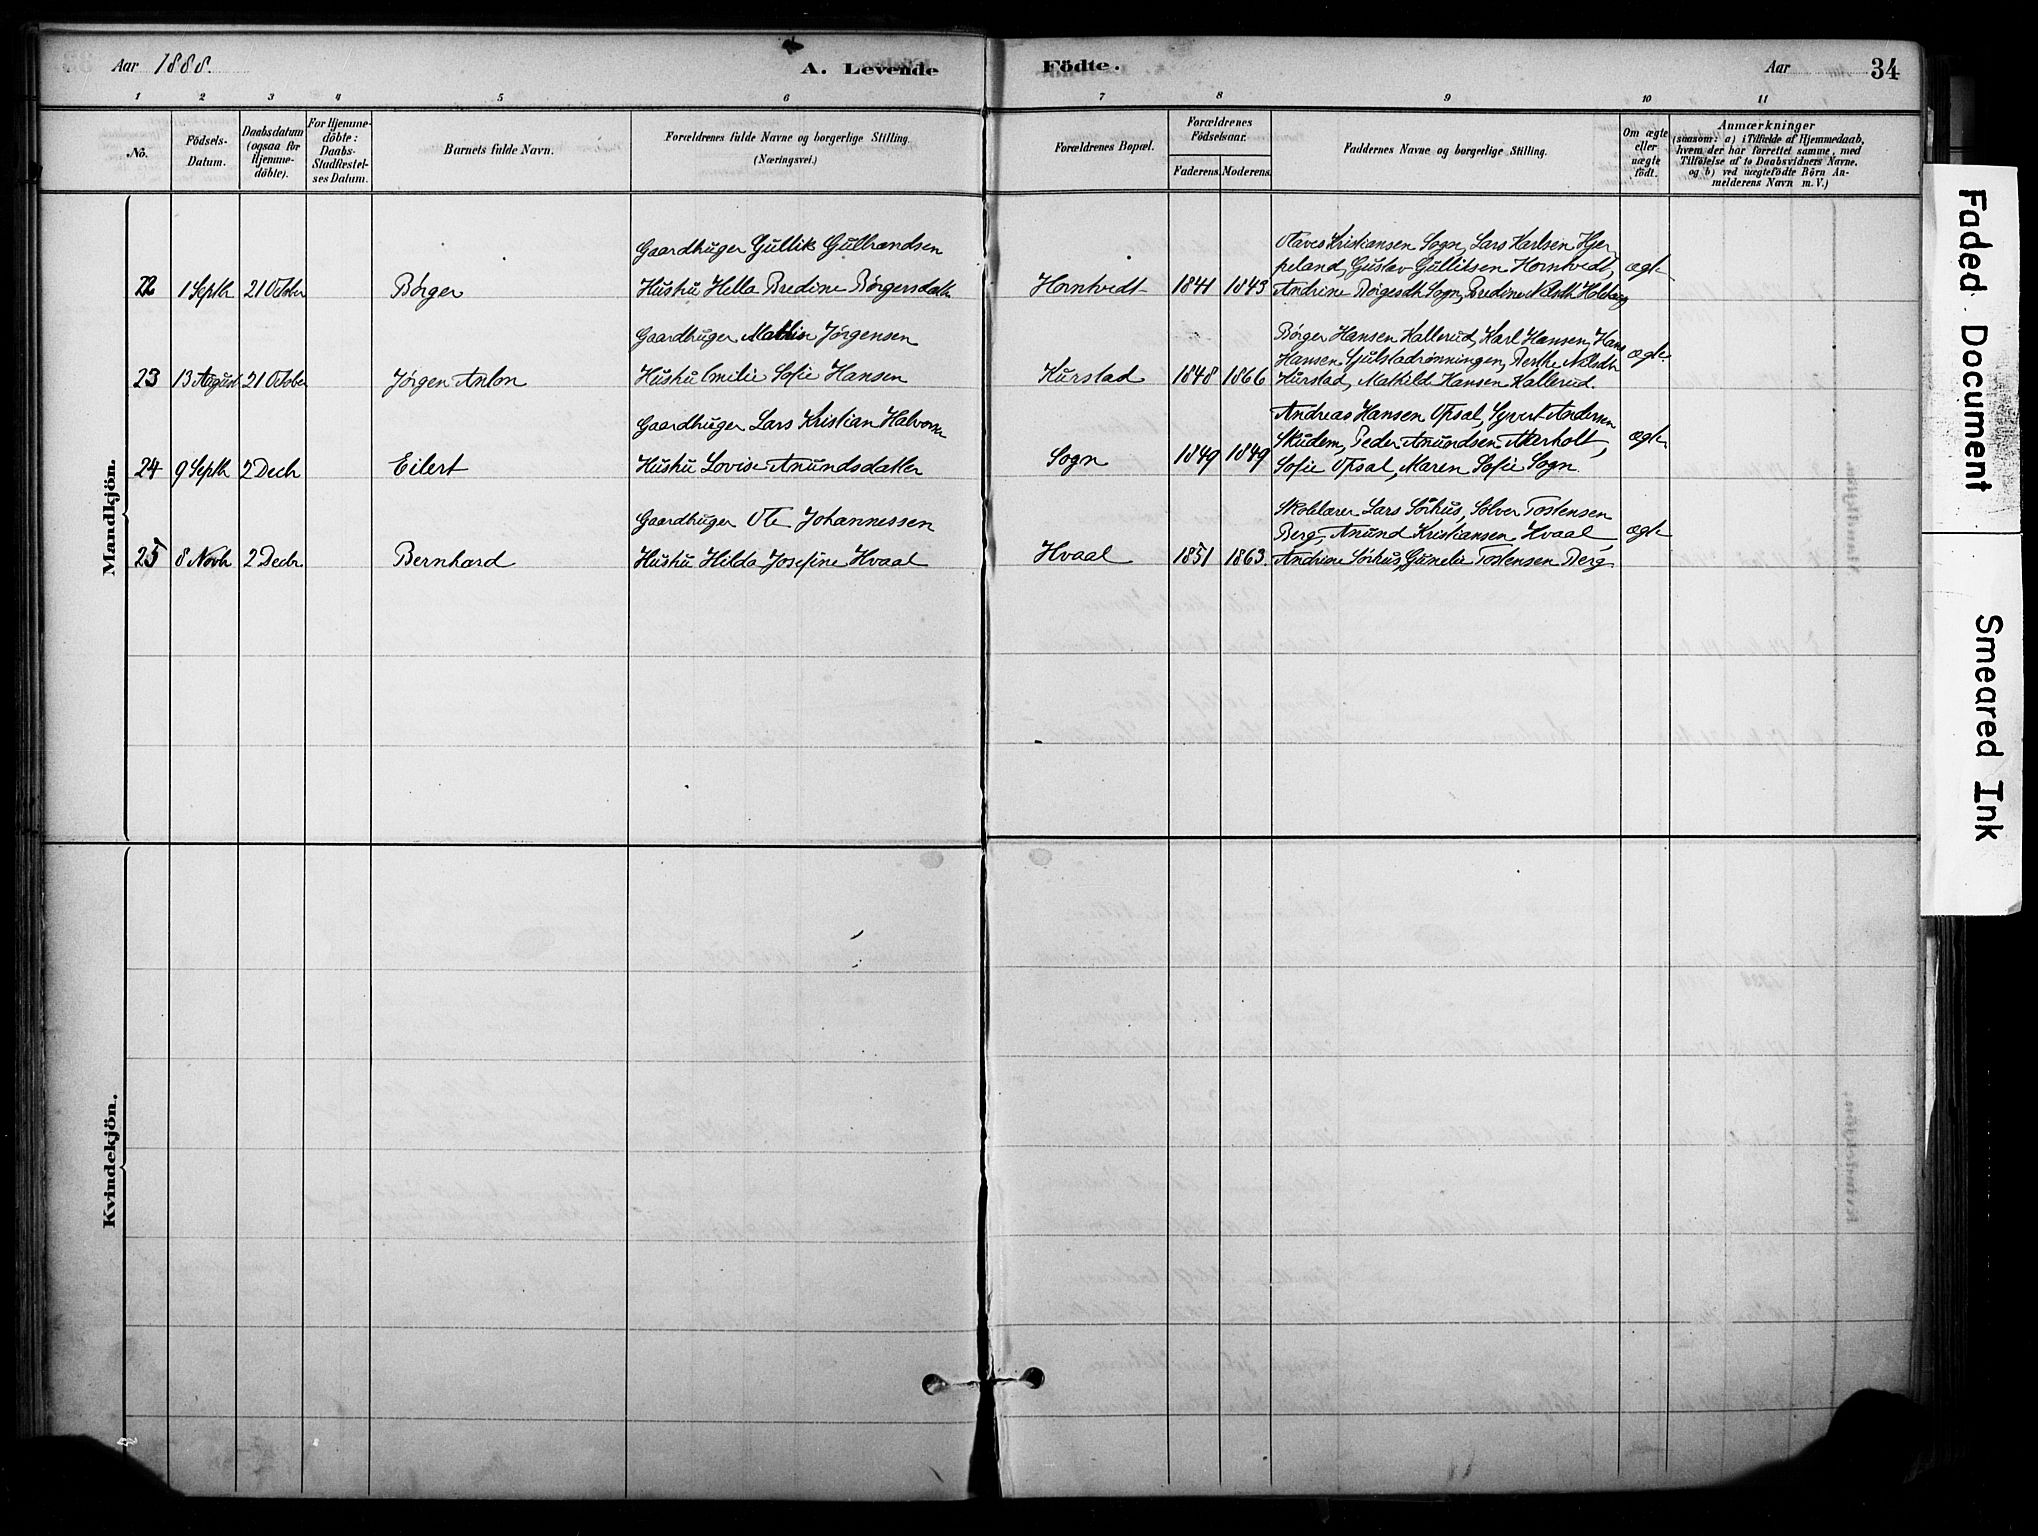 Aar 1888.
A. Levende
Födte.
Aar
34
1 2 3 4 5 6 7 8 9 10 11
No.
Födsels-Datum.
Daabsdatum (ogsaa for Hjemme-döbte).
For Hjemme-döbte: Daabs-Stadfestel-ses Datum.
Barnets fulde Navn.
Forældrenes fulde Navne og borgerlige Stilling.
(Næringsvei.)
Forældrenes Bopæl.
Forældrenes Födselsaar.
Faderens.
Moderens.
Faddernes Navne og borgerlige Stilling.
Om ægte eller uægte födt.
Anmærkninger
(saasom: a) i Tilfælde af Hjemmedaab, hvem der har forrettet samme, med Tilföielse af to Daabsvidners Navne, og b) ved uægtefödte Börn An-melderens Navn m. V.)
Mandkjön.
Gaardbruger Gullik Gulbrandsen
22 1 Septbr 21 October Börger Hustru Hella Bredine Börgersdatter Horntvedt 1841 1843
Kristiansen Sogn, Lars Karlsen Hjer
peland, Gustav Gulliksen Horntvedt,
Andrine Börgesdtr Sogn, Bredine Nilsdtr Holtberg
ægte
Gaardbruger Mathias Jörgensen
23 13 August 21 October Jörgen Anton Hustru Emilie Sofie Hansen Kurstad 1848 1866
Börger Hansen Kallerud, Karl Hansen, Hans
Hansen Gjulstadrönningen, Berthe Nilsdtr
Kurstad, Mathild Hansen Kallerud.
ægte
Gaardbruger Lars Kristian Halvorsen
24 9 Septbr 2 Decbr Eilert Hustru Lovise Amundsdatter Sogn 1849 1849
Andreas Hansen Opsal, Syvert Andersen
Skudem, Peder Amundsen Aarholt,
Sofie Opsal, Maren Sofie Sogn.
ægte
Gaardbruger Ole Johannessen
25 8 Novbr 2 Decbr Bernhard Hustru Hilda Josefine Hvaal Hvaal 1851 1863.
Skolelærer Lars Sörhus, Solver Tostensen
Berg, Amund Kristiansen Hvaal
Andrine Sörhus, Gunelie Tostensen Berg
ægte
Kvindekjön.
Faded Document
Smeared Ink